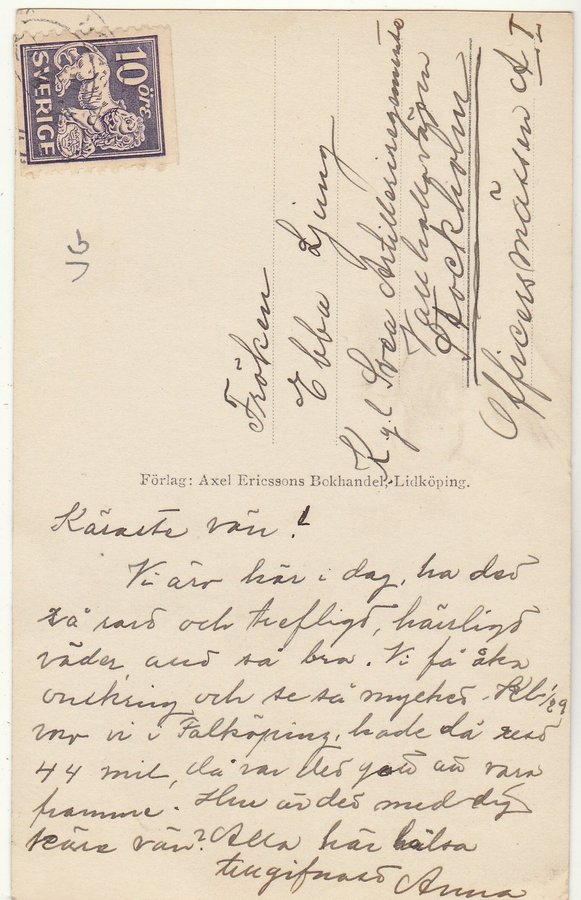 10 öre
SVERIGE
Fröken
Ebba Ljung
Kgl Svea Artilleriregemente
Stockholm
Officersmässen A I
Förlag: Axel Ericssons Bokhandel, Lidköping.
Käraste vän!
Vi äro här i dag, ha det
så rart och trefligt, härligt
väder, allt så bra. Vi få åka
omkring och se så mycket. Kl. 1/2 9
vi i Falköping, hade då rest
44 mil, då var det gott att vara
framme. Hur är det med dig
kära vän? Alla här hälsa
tillgifnast Anna